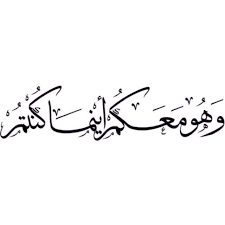 وَهُوَ مَعَكُمْ أَيْنَمَا كُنْتُمْ